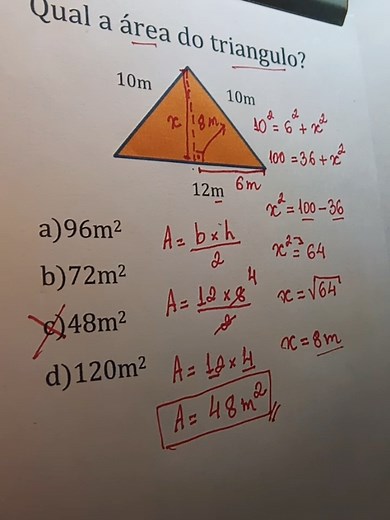 Qual a área do triangulo?
10m
10m
x
8m
12m
6m
10² = 6² + x²
100 = 36 + x²
x² = 100 - 36
x² = 64
x = √64
x = 8m
a)96m²
b)72m²
c)48m²
d)120m²
A = b x h
2
A = 12 x 8 4
2
A = 12 x 4
A = 48m²